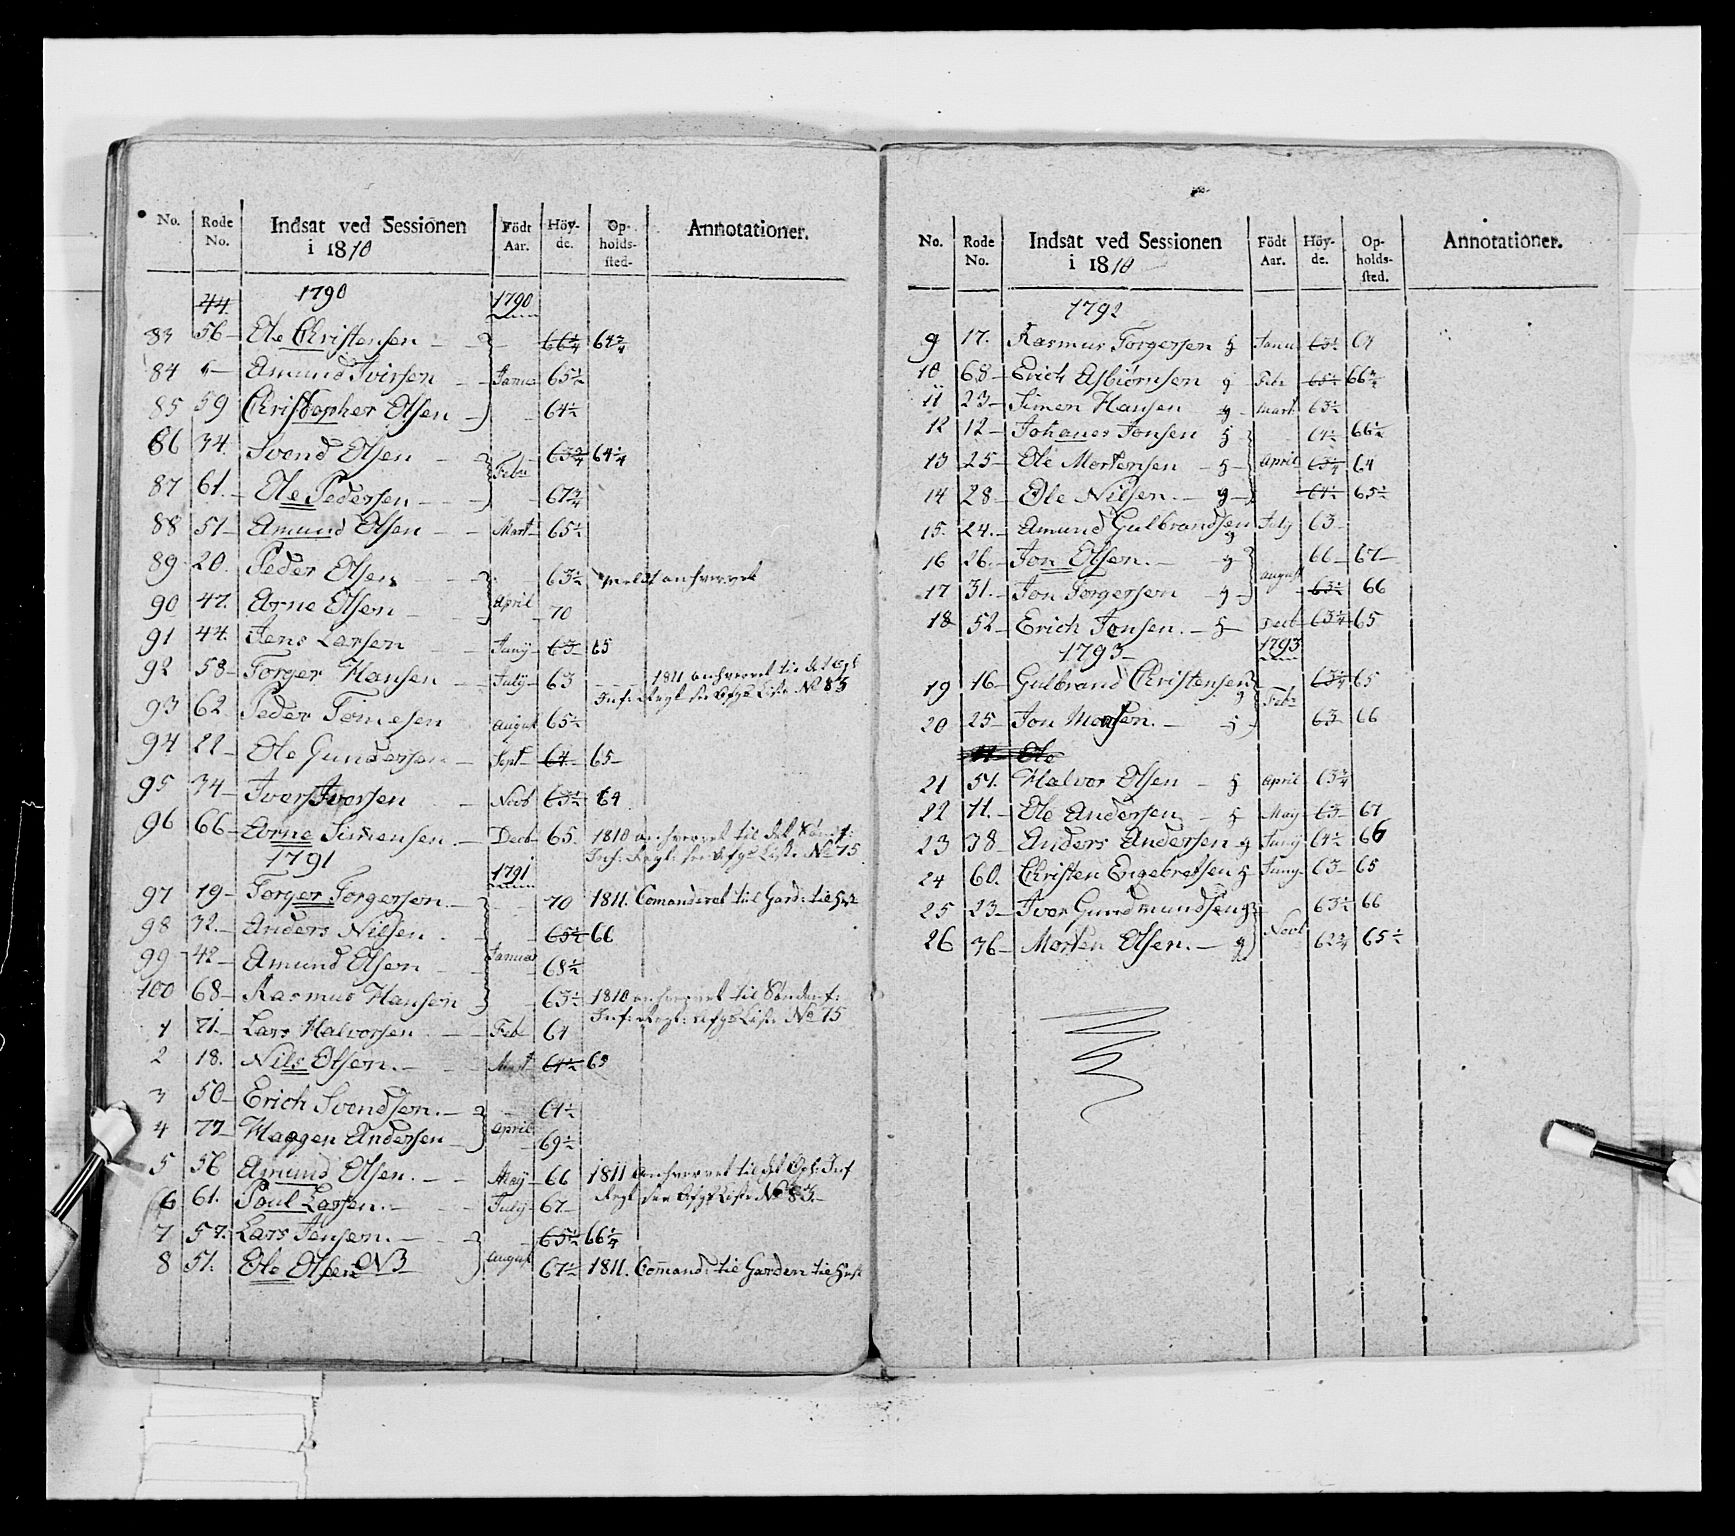 No. Rode No. Indsat ved Sessionen i 1810 Födt Aar. Höy-de. Op-holds-sted. Annotationer.
44. 1790 1790
83 56 Ole Christensen 66¼ 64¾
84 Amund Iversen Janua 65½
85 59 Christopher Olsen 64½
86 34. Svend Olsen 63¾ 64¼
87 61. Ole Pedersen Febr 67¾
88 51 Amund Olsen Mart 65½
89 20. Peder Olsen 63½
90 47. Arne Olsen April 70
91 44. Jens Larsen Juny 63 65
92 58 Torger Hansen July 63 1811 anhvervet til det Opl
Inf: Regt No 83
93 62 Peder August 65½
94 22 Ole Gundersen Sept 64 65
95 34 Iver Iversen Novb 63½ 64
96 66 Arne Simensen Decb 65. 1810 anhvervet til det Sønd:
Inf: Regt: No 15
1791 1791
97 19 Torger Torgersen 70 1811. Comanderet til Gard: til
98 32. Anders Nilsen 65½ 66
99 42 Amund Olsen Januar 68½
100 68 Rasmus Hansen 63½ 1810 anhvervet til Sønden f:
Inf: Regt: No 15
1 71. Lars Halvorsen Feb 64
2 18. Nils Olsen. Mart 64½ 65
3 50 Erich Svendsen. 64½
4 77 Haagen Andersen April 69½
5 56 Amund Olsen. May 66 1811 anhvervet til det Opl: Inf
Regt No 83
6 61. Poul Larsen. July 67
7 57. Lars Jensen. 65½ 66¼
8 51. Ole Olsen August 67½ 1811. Comand: til Garden til
No. Rode No. Indsat ved Sessionen i 1810 Födt Aar. Höy-de. Op-holds-sted. Annotationer.
1792
9 17. Rasmus Torgersen Janu 63½ 64
10 68 Erich Asbiörnsen Febr 65½ 66½
11 23 Simen Hansen Mart 63½
12 12 Johanes Jonsen 64½ 66½
13 25 Ole Mortensen April 63¼ 64
14 28 Ole Nilsen. 64½ 65½
15. 24. Amund Gulbrandsen July 63
16 26. Jon Olsen. 66 67
17 31. Jon Torgersen August 63½ 66
18 52 Erich Jonsen. Decb 63¼ 65
1793 1793
19 16 Gulbrand Christensen 63¾ 65
20 25 Jon Monsen. Febr 63 66
Ole
21 51. Halvor Olsen April 63¾
22 11. Ole Andersen May 63 67
23 38 Anders Andersen Juny 64½ 66
24 60. Christen Engebretsen Juny 63 65
25 23 Iver Gundmundsen 63½ 66
26 36 Morten Olsen. Novb 62¾ 65½